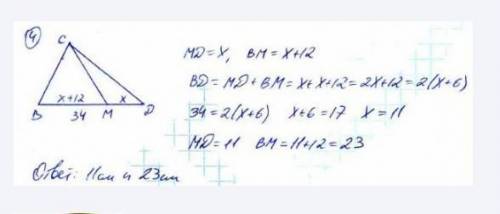 4
C
x+12 x
B 34 M D
MD = x, BM = x+12
BD = MD + BM = x + x+12 = 2x+12 = 2(x+6)
34 = 2(x+6) x+6 = 17 x = 11
MD = 11 BM = 11+12 = 23
Ответ: 11см и 23см